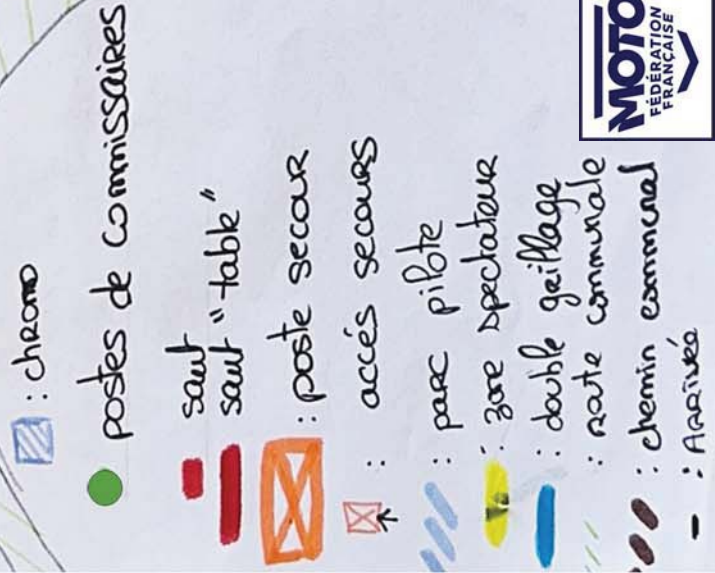 : chrono
postes de commissaires
saut
saut "table"
: poste secour
: accés secours
: parc pilote
: zone spectateur
: double grillage
: route communale
: chemin communal
: Arrivée
MOTO
FÉDÉRATION
FRANÇAISE